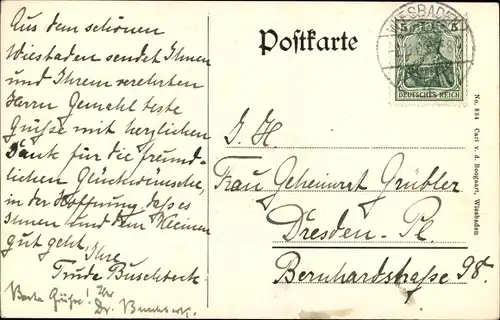 Aus dem schönen
Wiesbaden sendet Ihnen
und Ihrem verehrten
Herrn Gemahl beste
Grüße mit herzlichem
Dank für die freund-
lichen Glückwünsche,
in der Hoffnung, daß es
Ihnen und dem Kleinen
gut geht,
Ihre
Trude Buschbeck
Beste Grüße! Ihr
Dr.
Postkarte
WIESBADEN
5 5
DEUTSCHES REICH
No. 884 Carl v. d. Boogaart, Wiesbaden
I. H.
Frau Geheimrat Grübler
Dresden-Pl.
Bernhardstraße 98.